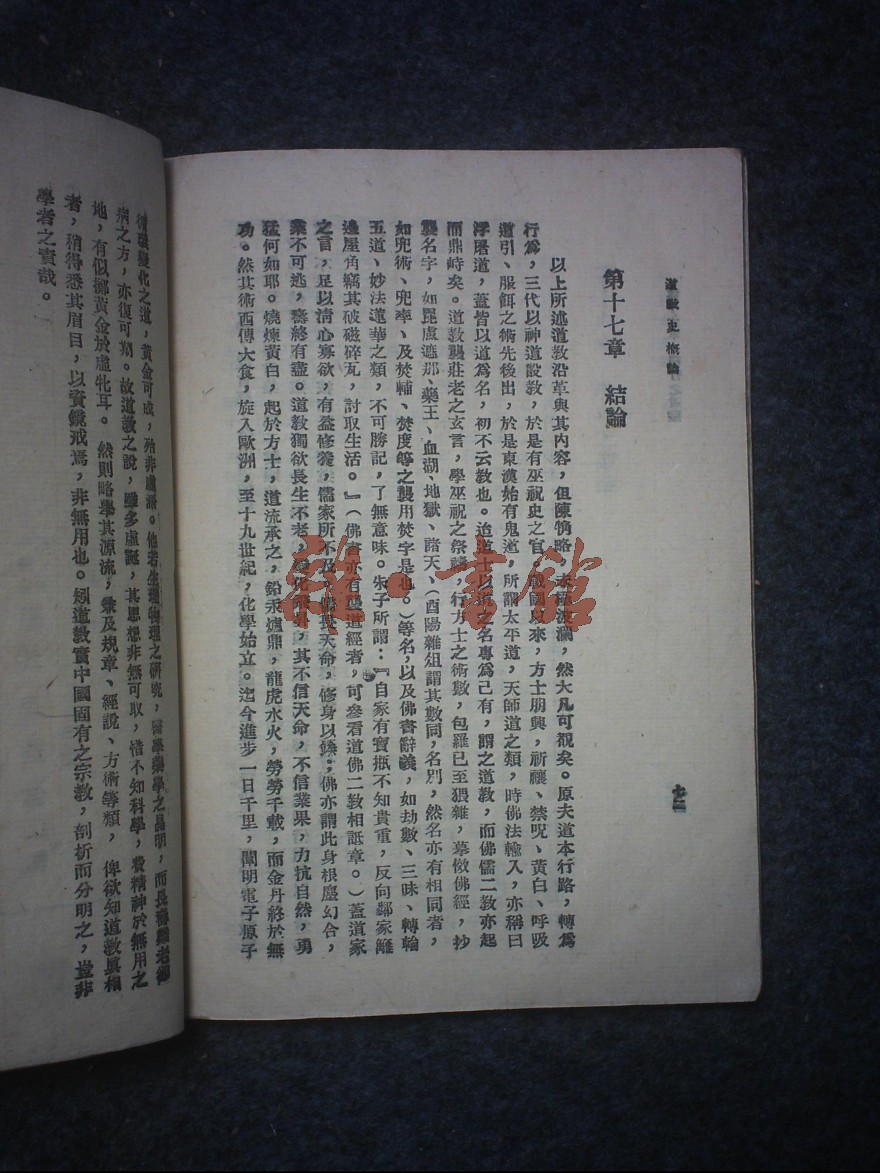 道敎史概論
七二
第十七章　結論
以上所述道教沿革與其內容，但陳觕略，未極波瀾，然大凡可覩矣。原夫道本行路，轉爲
行爲，三代以神道設教，於是有巫祝史之官。戰國以來，方士朋興，祈禳、禁呪、黃白、呼吸
道引、服餌之術先後出，於是東漢始有鬼道，所謂太平道，天師道之類，時佛法輸入，亦稱曰
浮屠道，蓋皆以道爲名，初不云教也。迨道士以道之名專爲己有，謂之道教，而佛儒二教亦起
而鼎峙矣。道教襲莊老之玄言，學巫祝之祭禱，行方士之術數，包羅已至猥雜，摹倣佛經，抄
襲名字，如毘盧遮那、藥王、血湖、地獄、諸天、（酉陽雜俎謂其數同，名別，然名亦有相同者，
如兜術、兜率、及梵輔、梵度等之襲用梵字是也。）等名，以及佛書辭義，如劫數、三昧、轉輪
五道、妙法蓮華之類，不可勝記，了無意味。朱子所謂：『自家有寶抵不知貴重，反向鄰家籬
邊屋角竊其破磁碎瓦，討取生活。』（佛書亦有襲道經者，可參看道佛二教相詆章。）蓋道家
之言，足以清心寡欲，有益修養，儒家所不及，儒畏天命，修身以俟；佛亦謂此身根塵幻合，
業不可逃，壽終有盡。道教獨欲長生不老，變化飛昇，其不信天命，不信業果，力抗自然，勇
猛何如耶。燒煉黃白，起於方士，道流承之，鉛汞爐鼎，龍虎水火，勞勞千載，而金丹終於無
功。然其術西傳大食，旋入歐洲，至十九世紀，化學始立。迄今進步一日千里，闡明電子原子
變化之道，黃金可成，殆非虛語。他若生理物理之研究，醫學藥學之昌明，而長壽
病之方，亦復可期。故道教之說，雖多虛誕，其思想非無可取，惜不知科學，費精神於無用之
地，有似擲黃金於虛牝耳。然則略學其源流，兼及規章、經說、方術等類，俾欲知道教眞相
者，稍得悉其眉目，以資鏡戒焉，非無用也。矧道教實中國固有之宗教，剖析而分明之，豈非
學者之責哉。
雜·書館